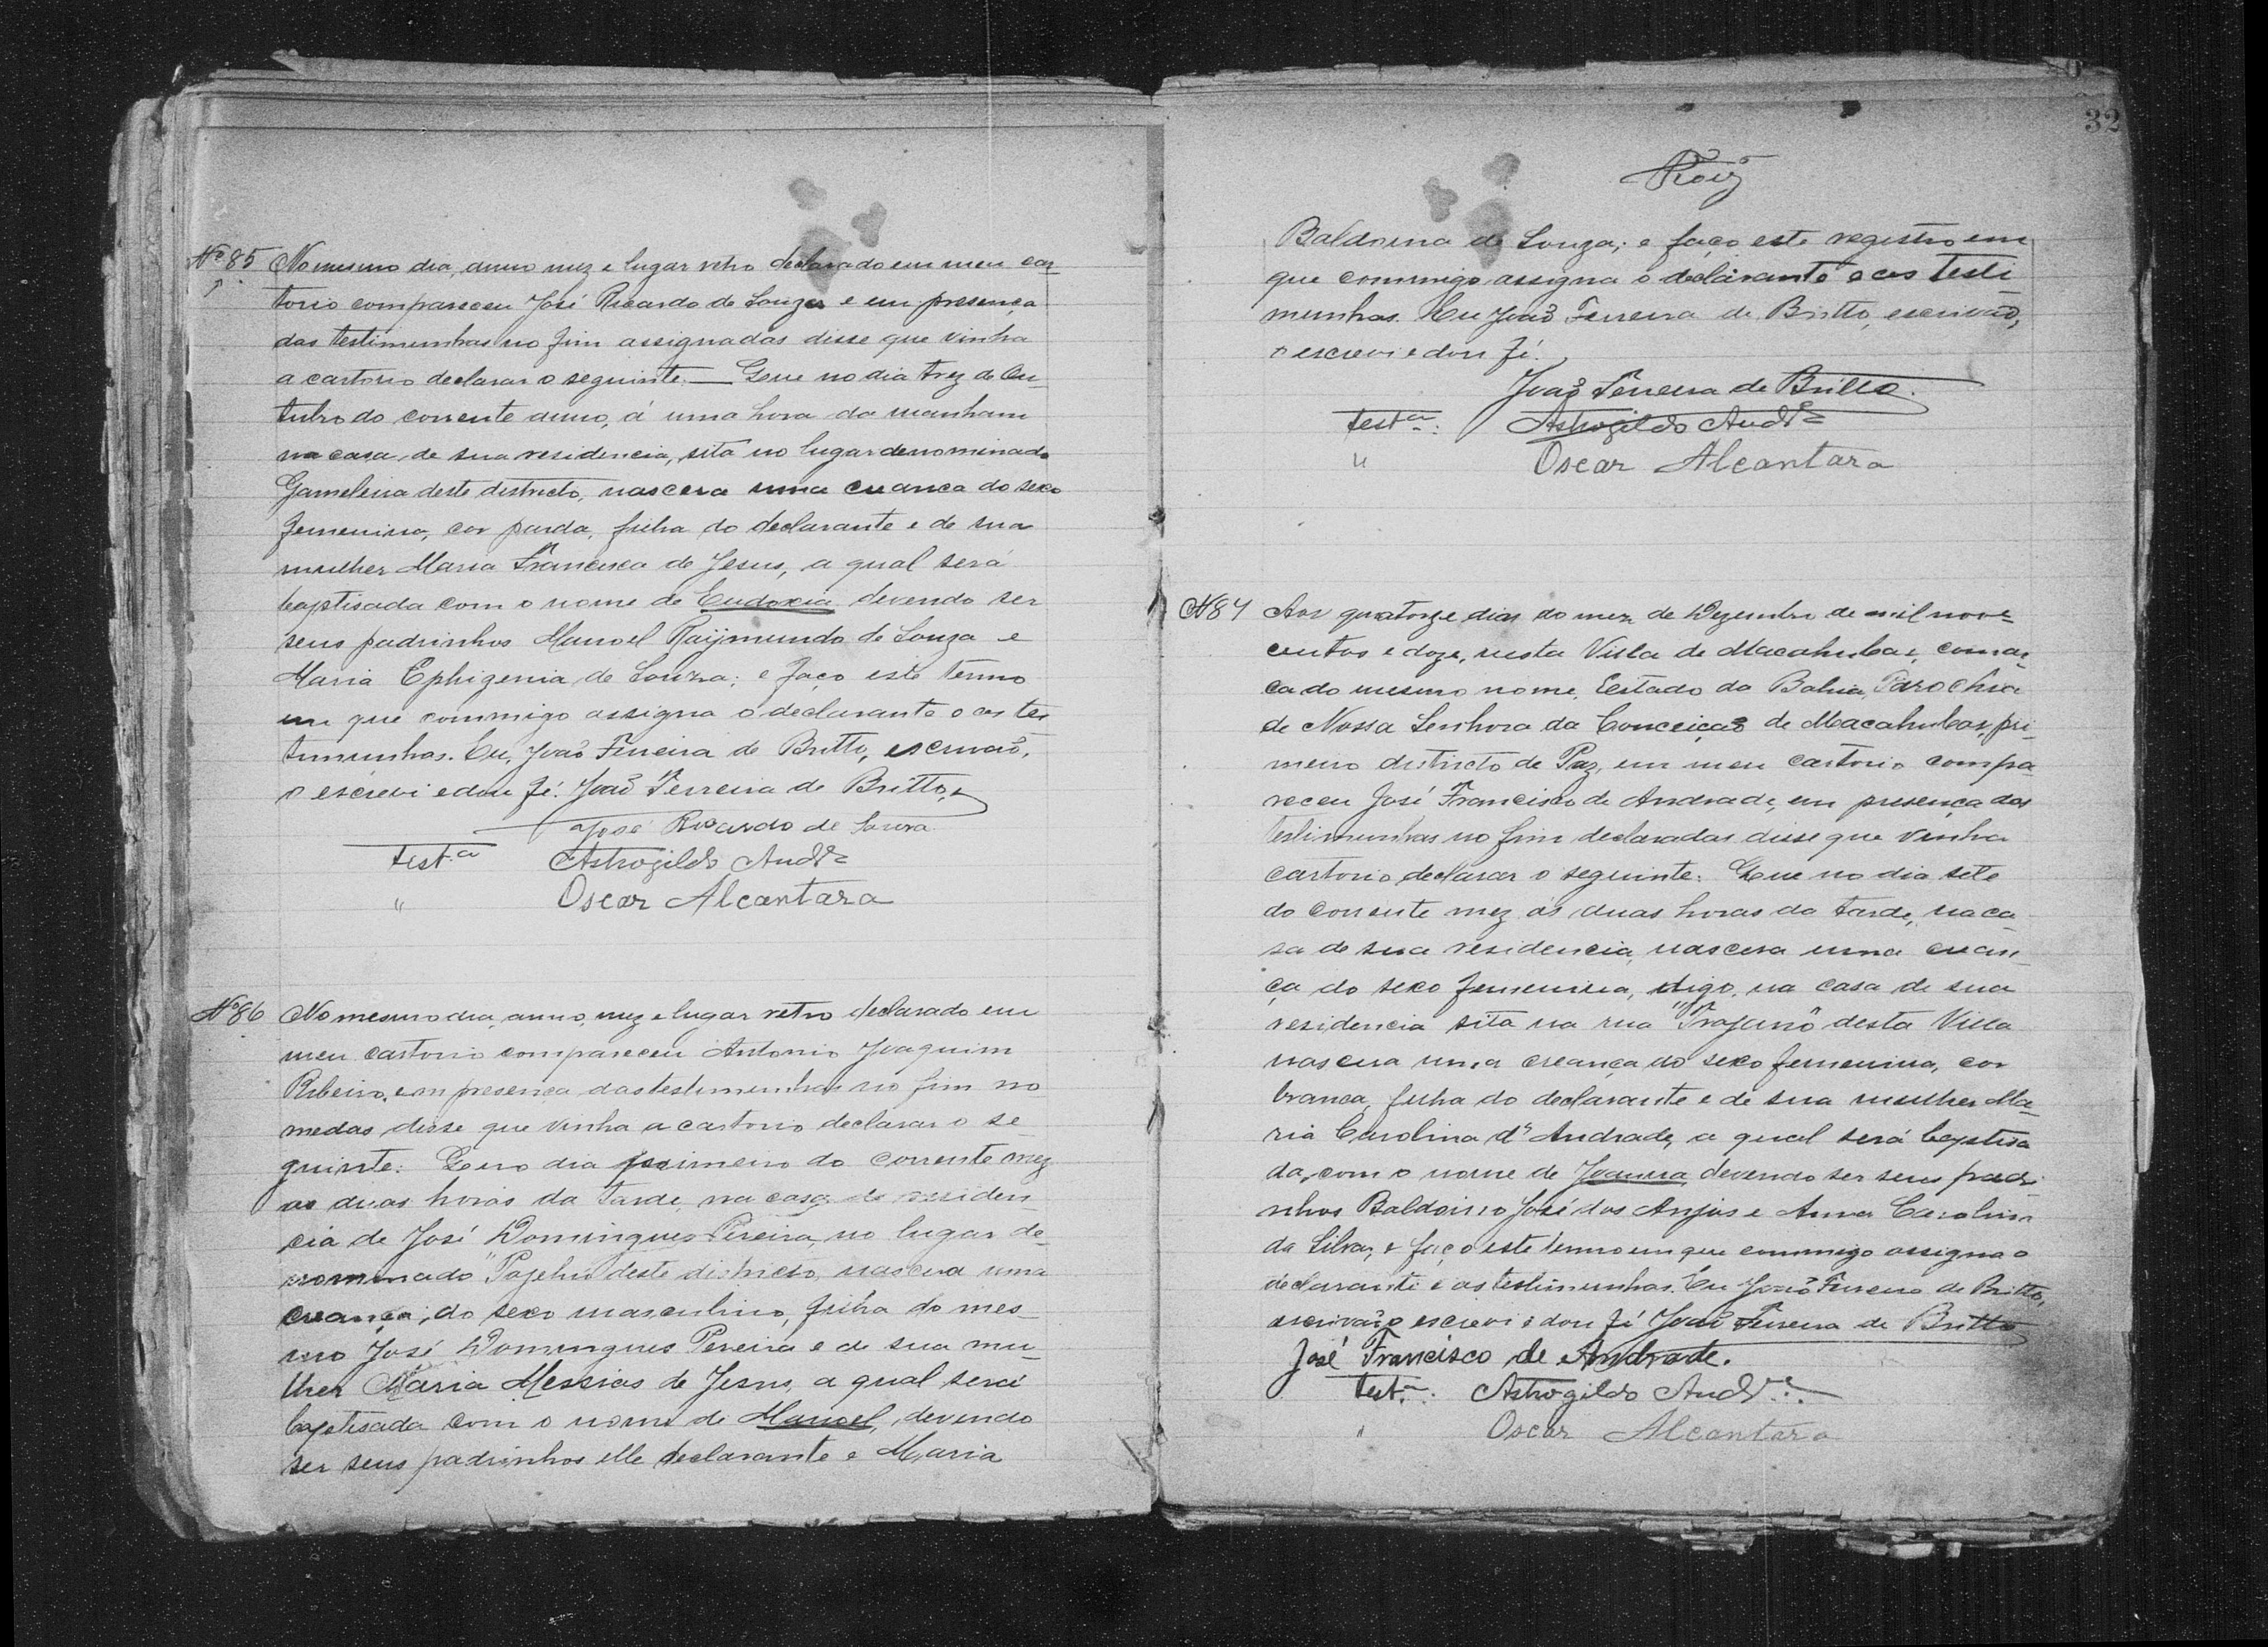 Nº 85 No mesmo dia, anno mez e lugar retro declarado em meu car
torio compareceu José Ricardo de Souza e em presença
das testimunhas no fim assignadas disse que vinha
a cartorio declarar o seguinte: — Que no dia trez de Ou-
tubro do corrente anno, á uma hora da manham
na casa de sua residencia, sita no lugar denominado
Gamelleira deste districto, nascera uma creanca do sexo
femenino, cor parda, filha do declarante e de sua
mulher Maria Francisca de Jesus, a qual será
baptisada com o nome de Eudoxia devendo ser
seus padrinhos Manoel Raÿmundo de Souza e
Maria Ephigenia de Souza; e faço este termo
em que commigo assigna o declarante e as tes
timunhas. Eu, João Ferreira de Britto, escrivão,
o escrevi e dou fé. João Ferreira de Britto
José Ricardo de Souza
testª Astrogildo Andre
" Oscar Alcantara
Nº 86 No mesmo dia, anno, mez e lugar retro declarado em
meu cartorio compareceu Antonio Joaquim
Ribeiro, em presença das testimunhas no fim no
medas disse que vinha a cartorio declarar o se-
guinte: Que no dia primeiro do corrente mez
as duas horas da tarde, na casa de residen
cia de José Domingues Pereira, no lugar de-
nominado "Pajehú deste districto, nascera uma
creança, do sexo masculino, filha do mes-
mo José Domingues Pereira e de sua mu-
lher Maria Messias de Jesus, a qual será
baptisada com o nome de Manoel, devendo
ser seus padrinhos elle declarante e Maria
32
Baldoina de Souza; e faço este registro em
que commigo assigna o declarante e as testi-
munhas. Eu João Ferreira de Britto, escrivão,
o escrevi e dou fé.
João Ferreira de Britto.
testª: Astrogildo Andre
" Oscar Alcantara
Nº 87 Aos quatorze dias do mez de Dezembro de mil nove-
centos e doze, nesta Villa de Macahubas, comar-
ca do mesmo nome, Estado da Bahia, Parochia
de Nossa Senhora da Conceição de Macahubas, pri-
meiro districto de Paz, em meu cartorio compa-
receu José Francisco de Andrade, em presença das
testimunhas no fim declaradas disse que vinha
cartorio declarar o seguinte: Que no dia sete
do corrente mez ás duas horas da tarde, na ca-
sa de sua residencia, nascera uma crean-
ça do sexo femenina, digo, na casa de sua
residencia sita na rua "Trajano" desta Villa
nascera uma creança do sexo femenina, cor
branca, filha do declarante e de sua mulher Ma-
ria Carolina d'Andrade, a qual será baptisa
da, com o nome de Joanna devendo ser seus padri-
nhos Baldoino José dos Anjos e Anna Carolina
da Silva; e faço este termo em que commigo assigna o
declarante e as testimunhas. Eu João Ferreira de Britto,
escrivão o escrevi e dou fé João Ferreira de Britto
José Francisco de Andrade.
testª: Astrogildo Andre
" Oscar Alcantara